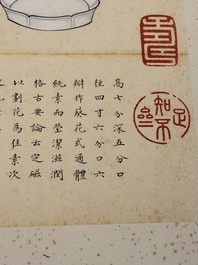 高七分深五分口
徑四寸六分口六
瓣作葵花式通體
純素而瑩潔滋潤
格古要論云定磁
以劃花為佳素次